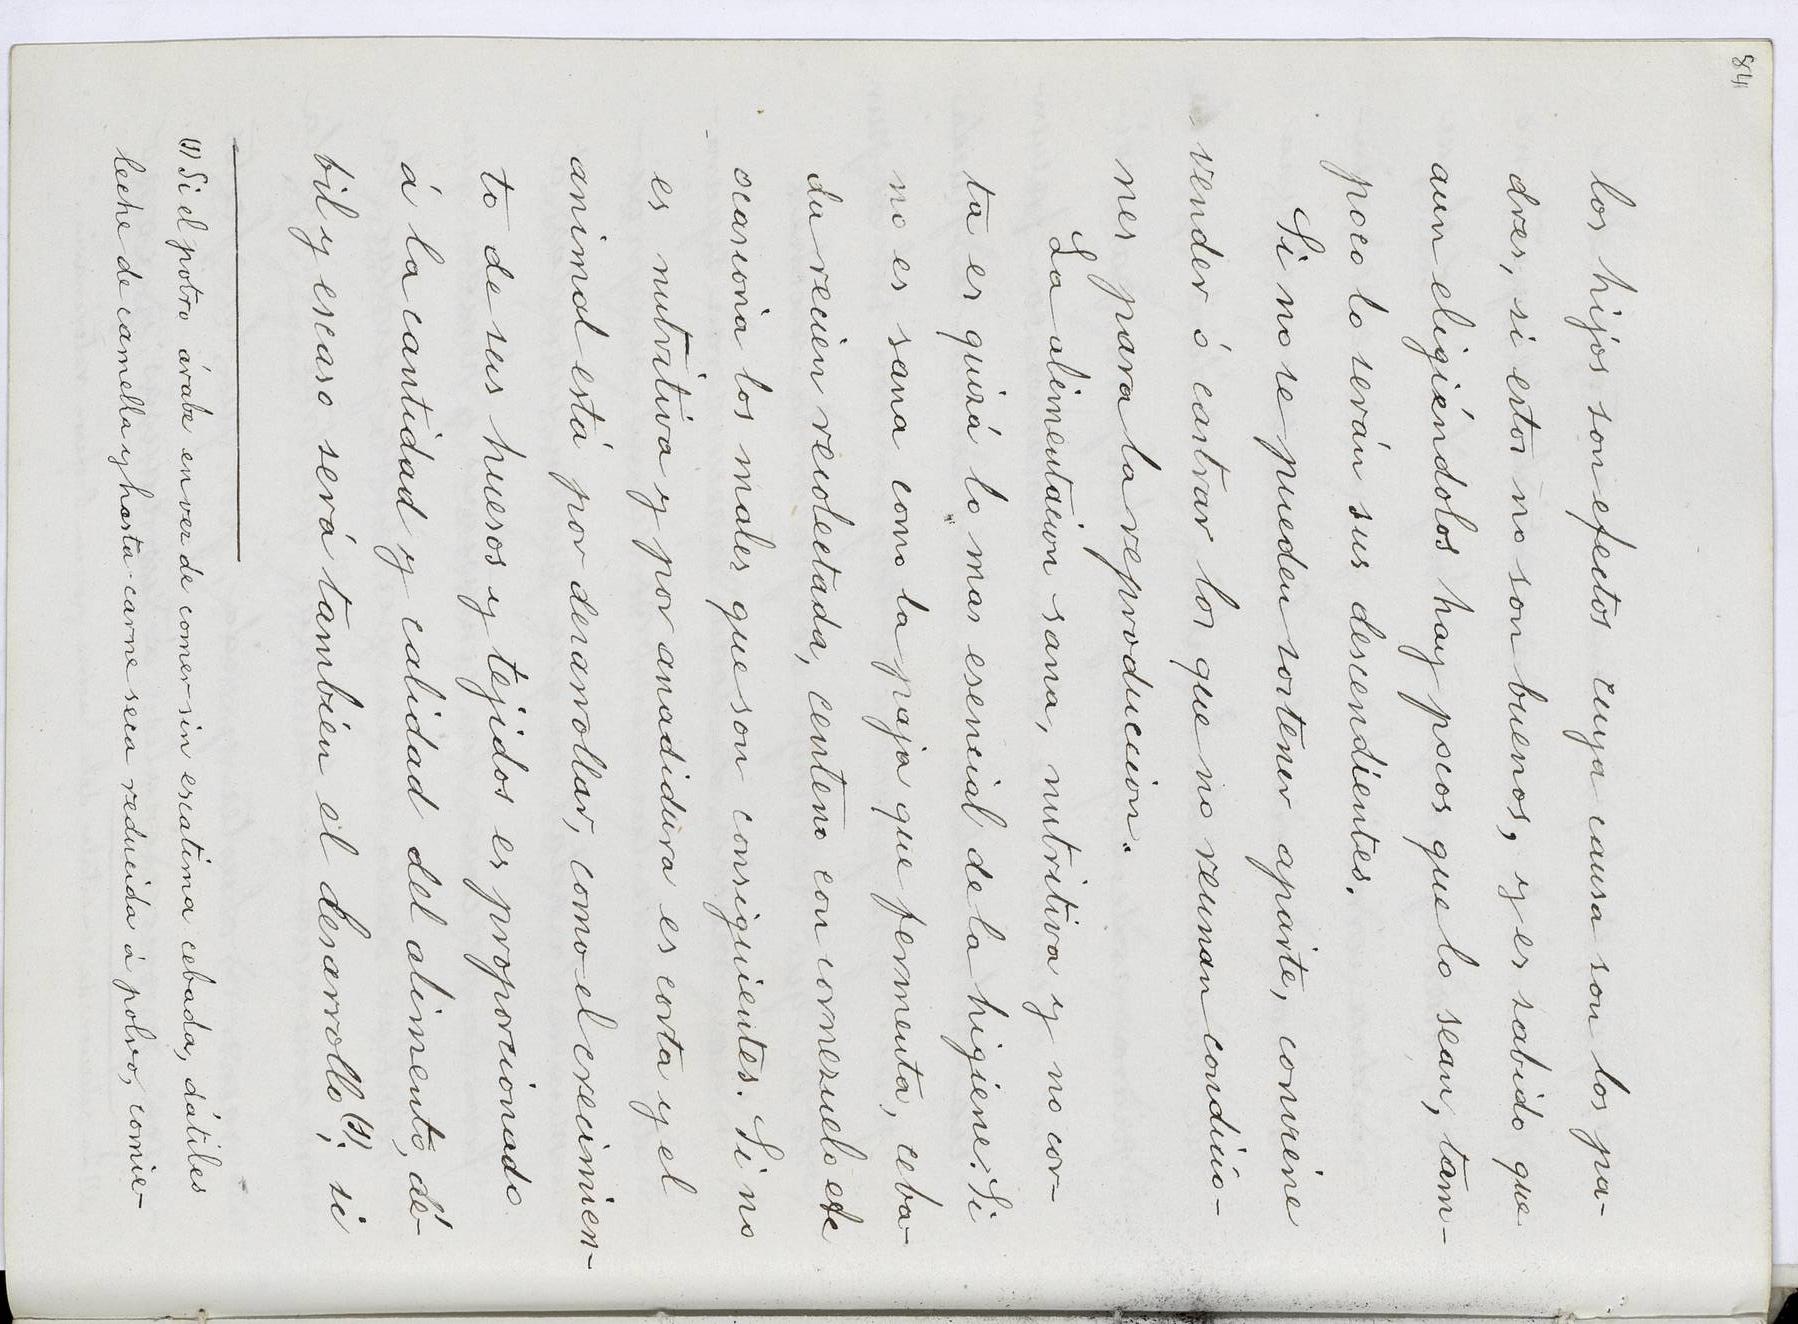 84
los hijos son efectos cuya causa son los pa-
dres, si estos no son buenos, y es sabido que
aun eligiéndolos hay pocos que lo sean, tam-
poco lo serán sus descendientes.
Si no se pueden sostener aparte, conviene
vender ó castrar los que no reunan condicio-
nes para la reproduccion.
La alimentacion sana, nutritiva y no cor-
ta es quizá lo mas esencial de la higiene. Si
no es sana como la paja que fermenta, ceba-
da recien recolectada, centeno con cornezuelo etc
ocasiona los males que son consiguientes. Si no
es nutritiva y por anadidura es corta y el
animal está por desarrollar, como el crecimien-
to de sus huesos y tejidos es proporcionado
á la cantidad y calidad del alimento, dé-
bil y escaso será tambien el desarrollo (1); si
(1) Si el potro árabe en vez de comer sin escatima cebada, dátiles
leche de camella y hasta carne seca reducida á polvo, comie-